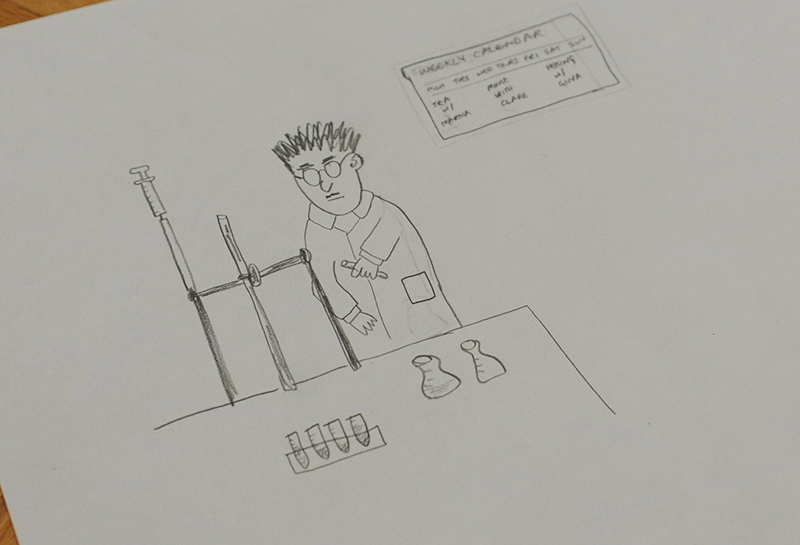 WEEKLY CALENDAR
MON TUES WED THURS FRI SAT SUN
TEA
w/
MARTHA
MEET
WITH
CLARE
HIKING
w/
GINA